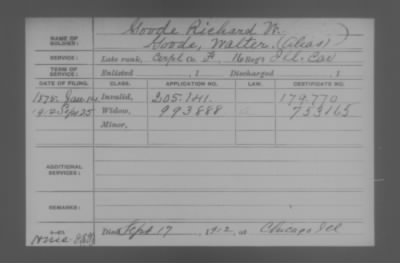 Goode Richard W.
NAME OF SOLDIER: Goode, Walter. (Alias)
SERVICE: Late rank, Corpl Co F, 16 Regt Ill. Cav
TERM OF SERVICE: Enlisted , 1 Discharged , 1
DATE OF FILING. CLASS. APPLICATION NO. LAW. CERTIFICATE NO.
1878. Jan 14 Invalid, 305.141. 179.770
1912 Sept 25 Widow, 993888 753165
Minor,
ADDITIONAL SERVICES:
REMARKS:
Died Sept 17, 1912, at Chicago Ill